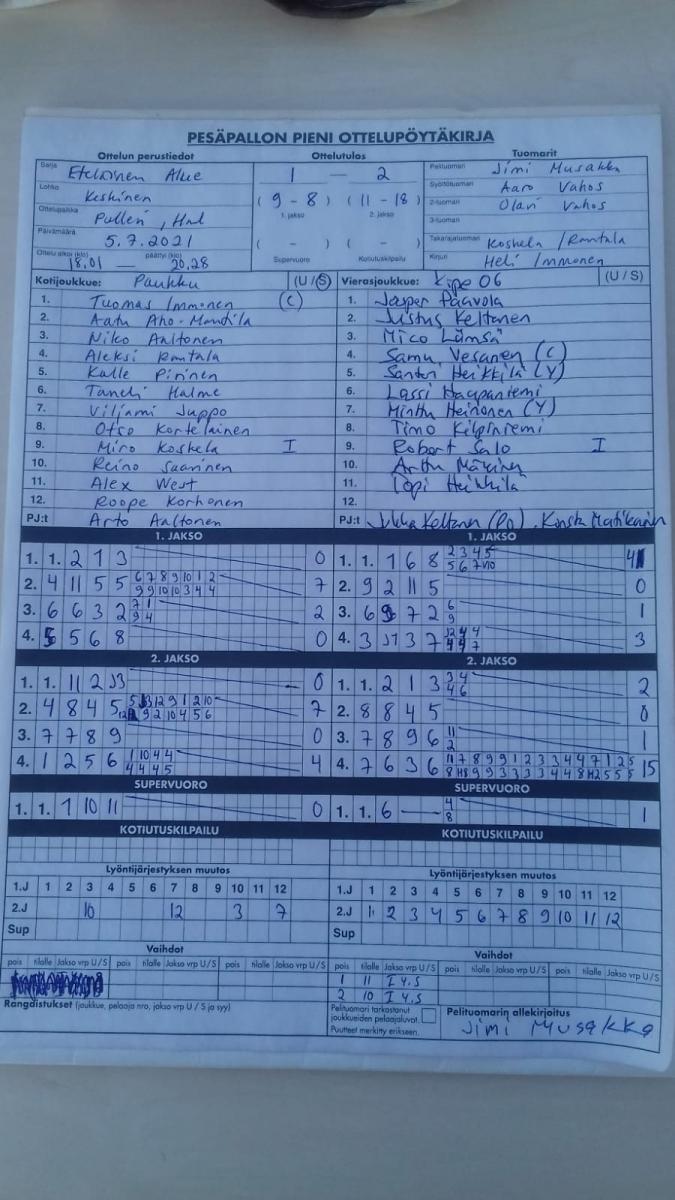 PESÄPALLON PIENI OTTELUPÖYTÄKIRJA
Ottelun perustiedot Ottelutulos Tuomarit
Sarja Eteläinen Alue 1 — 2 Pelituomari Jimi Musakka
Lohko Keskinen ( 9 - 8 ) ( 11 - 18 ) Syöttötuomari Aaro Vahos
1. jakso 2. jakso 2-tuomari Olavi Vahos
Ottelupaikka 3-tuomari
Päivämäärä 5.7.2021 ( - ) ( - ) Takarajatuomari Koskela / Rantala
Ottelu alkoi (klo) 18.01 — päättyi (klo) 20.28 Supervuoro Kotiutuskilpailu Kirjuri Heli Immonen
Kotijoukkue: Paukku (U / S) Vierasjoukkue: Kipe 06 (U / S)
1. Tuomas Immonen (C) 1. Jasper Paavola
2. Aatu Aho-Mantila 2. Justus Keltanen
3. Niko Aaltonen 3. Mico Lämsä
4. Aleksi Rantala 4. Samu Vesanen (C)
5. Kalle Pirinen 5. Santeri Heikkilä (Y)
6. Taneli Halme 6. Lassi Haapaniemi
7. Viljami Juppo 7. Minttu Heinonen (Y)
8. Otso Kortelainen 8. Timo Kilpiniemi
9. Miro Koskela I 9. Robert Salo I
10. Reino Saarinen 10. Arttu
11. Alex West 11. Topi Heikkilä
12. Roope Korhonen 12.
PJ:t Arto Aaltonen PJ:t Jukka Keltanen (Po), Konsta Matikainen
1. JAKSO 1. JAKSO
1. 1. 2 1 3 0 1. 1. 1 6 8 2 3 4 5 4
5 6 7 10
2. 4 11 5 5 6 7 8 9 10 1 2 7 2. 9 2 11 5 0
9 9 10 10 3 4 4
3. 6 6 3 2 7 1 2 3. 6 7 2 6 1
9 4 9
4. 5 5 6 8 0 4. 3 J1 3 7 3
2. JAKSO 2. JAKSO
1. 1. 11 2 J3 0 1. 1. 2 1 3 3 4 2
4 6
2. 4 8 4 5 12 9 1 2 10 7 2. 8 8 4 5 0
9 2 10 4 5 6
3. 7 7 8 9 0 3. 7 8 9 6 11 1
2
4. 1 2 5 6 1 10 4 4 4 4. 7 6 3 6 11 7 8 9 9 1 2 3 3 4 4 7 1 2 5 15
4 4 4 5
SUPERVUORO SUPERVUORO
1. 1. 1 10 11 0 1. 1. 6 — 4 1
8
KOTIUTUSKILPAILU KOTIUTUSKILPAILU
Lyöntijärjestyksen muutos Lyöntijärjestyksen muutos
1.J 1 2 3 4 5 6 7 8 9 10 11 12 1.J 1 2 3 4 5 6 7 8 9 10 11 12
2.J 10 12 3 7 2.J 1 2 3 4 5 6 7 8 9 10 11 12
Sup Sup
Vaihdot Vaihdot
pois tilalle Jakso vrp U/S pois tilalle Jakso vrp U/S pois tilalle Jakso vrp U/S pois tilalle Jakso vrp U/S pois tilalle Jakso vrp U/S pois tilalle Jakso vrp U/S
1 11 I 4.S
2 10 I 4.S
Rangaistukset (joukkue, pelaaja nro, jakso vrp U / S ja syy) Pelituomari tarkastanut Pelituomarin allekirjoitus
joukkueiden pelaajaluvat. Jimi Musakka
Puutteet merkitty erikseen.